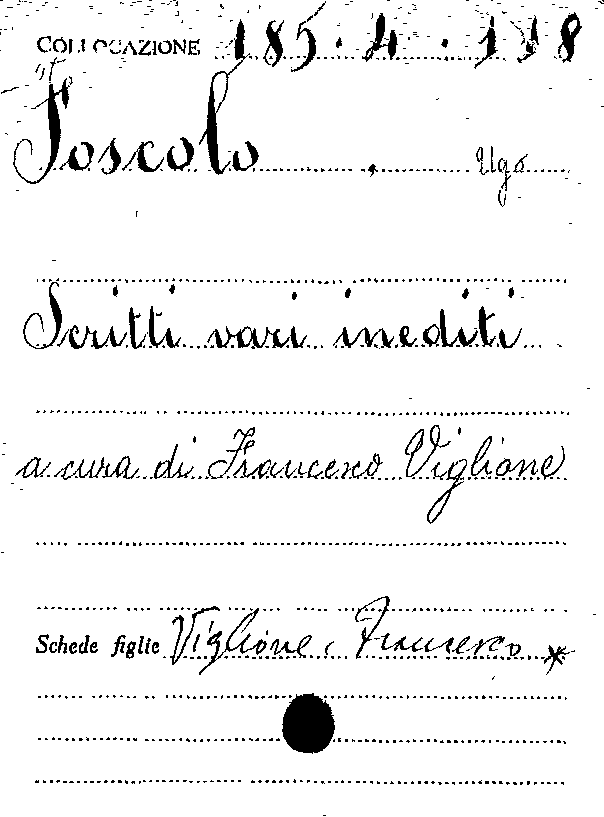 COLLOCAZIONE 185.4.118
Foscolo, Ugo
Scritti vari inediti
a cura di Francesco Viglione
Schede figlie Viglione, Francesco *